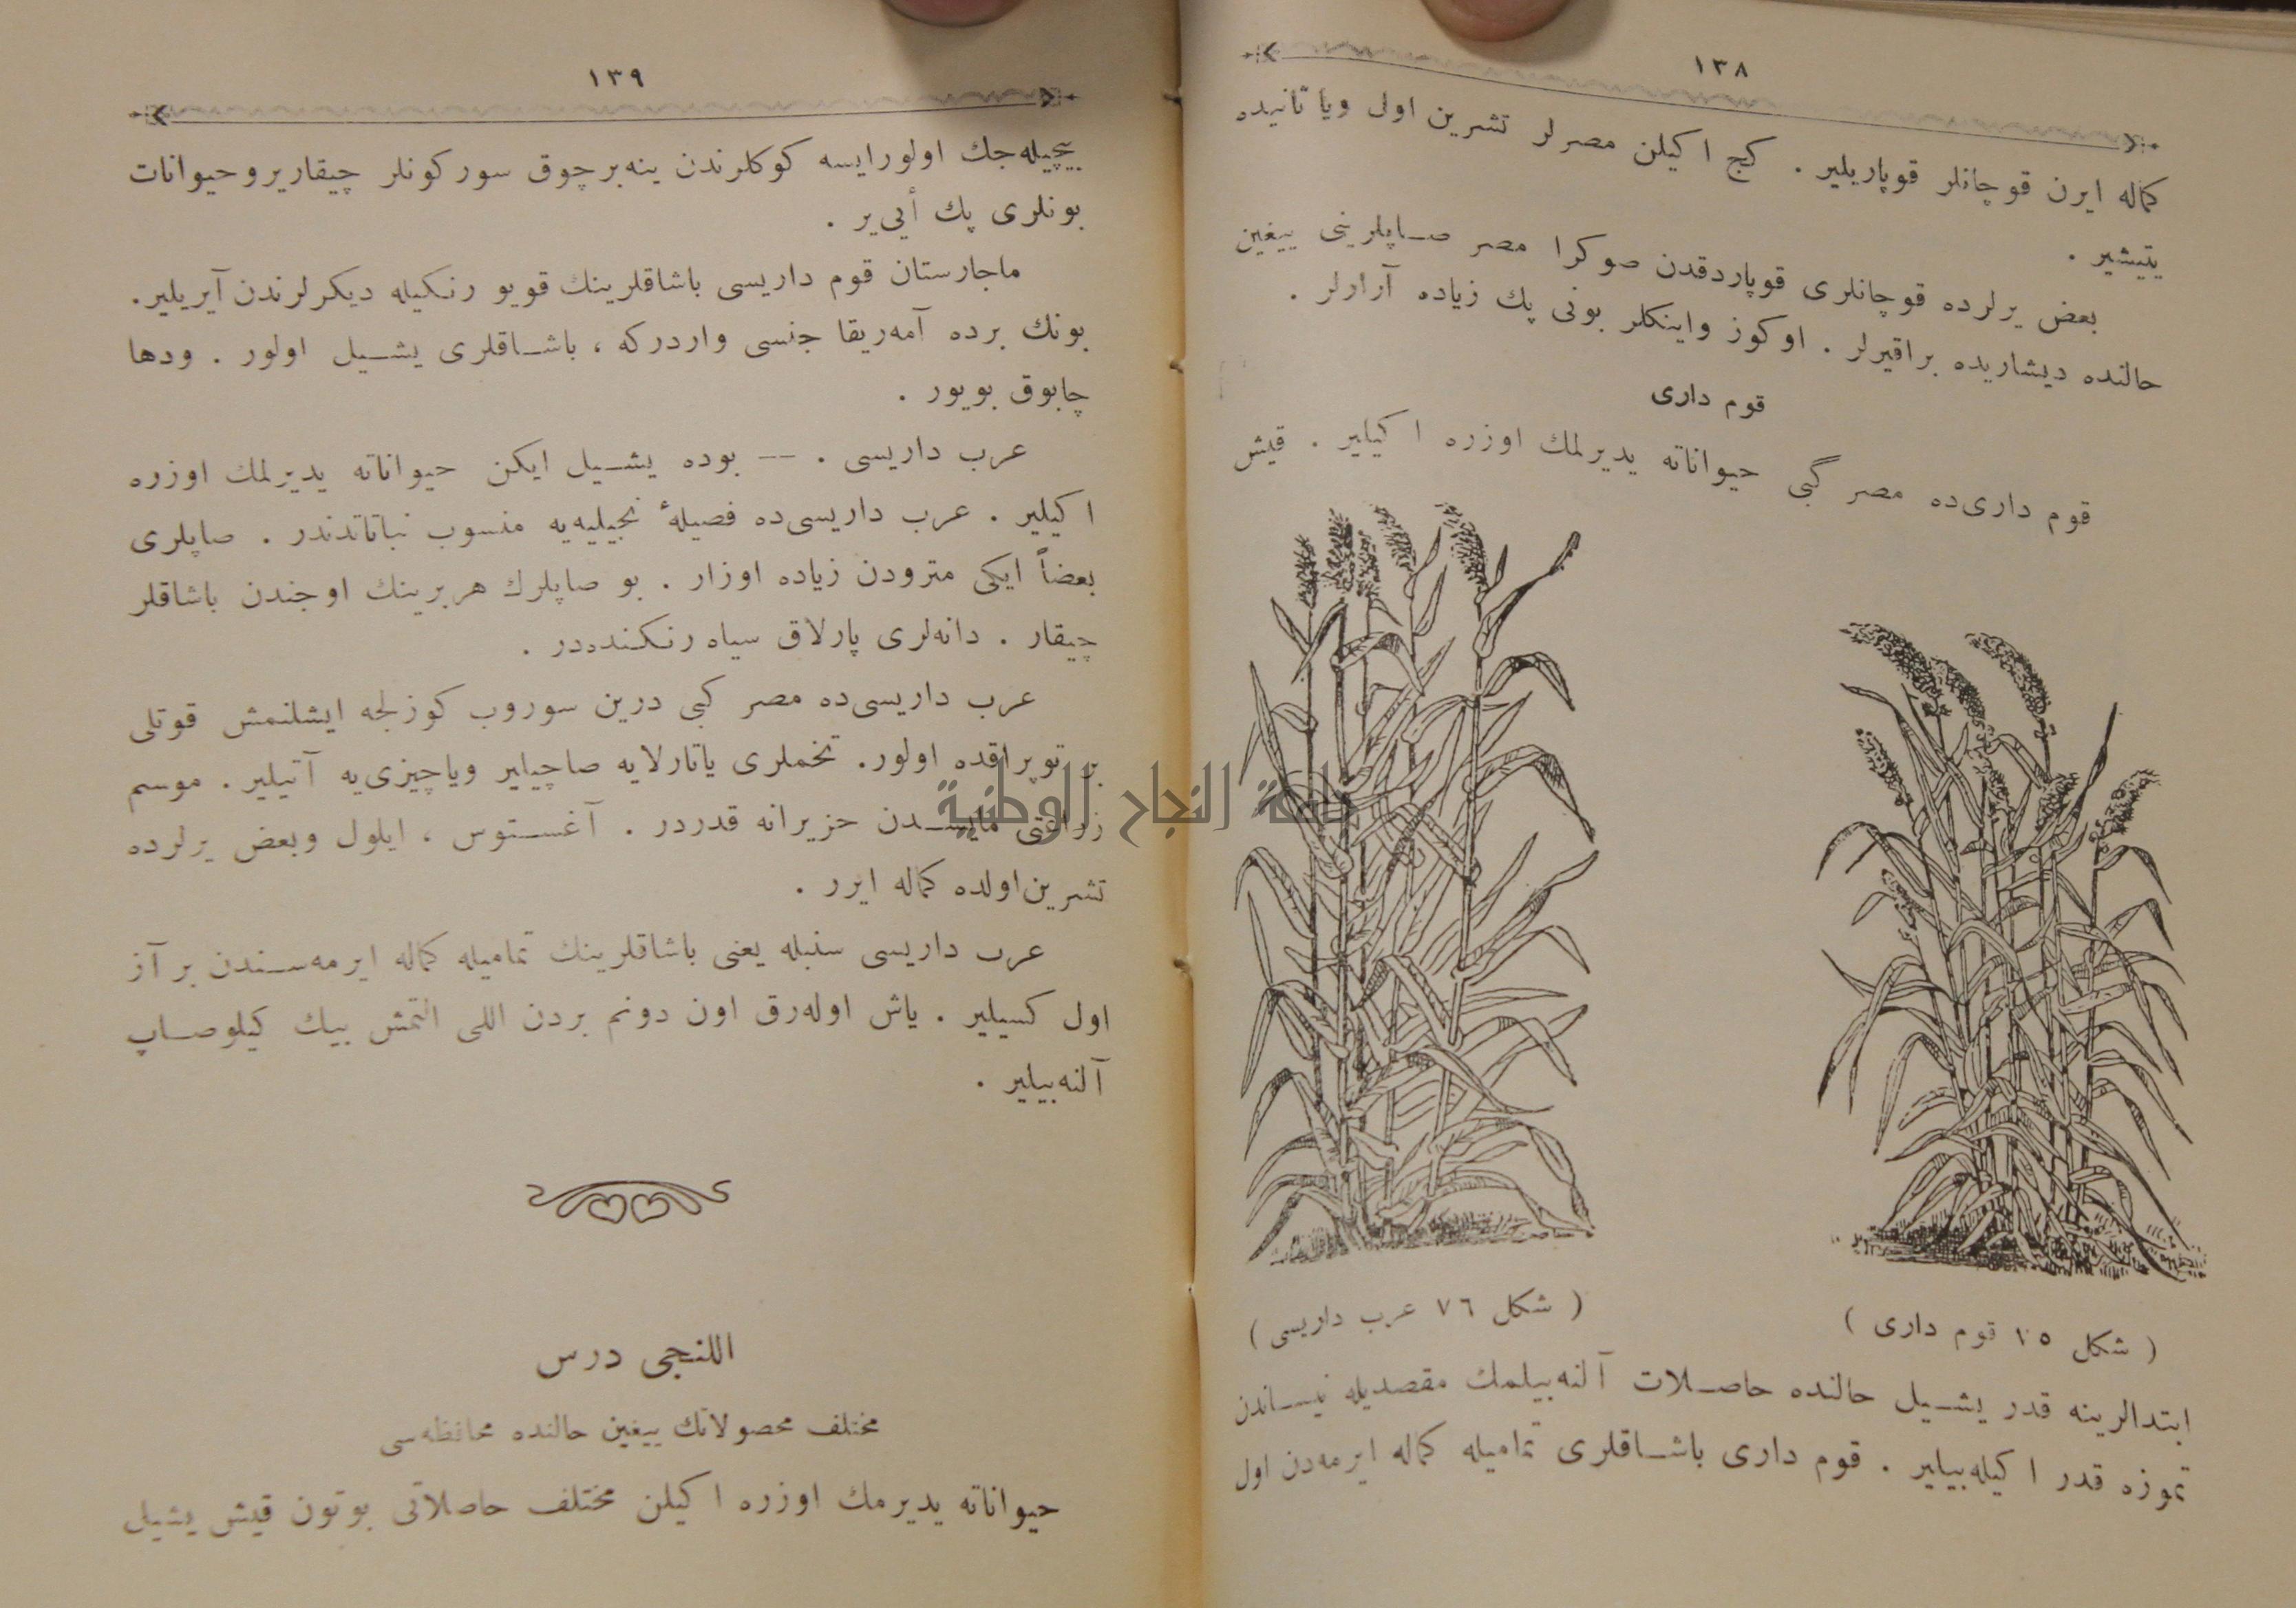 ١٣٨
كماله ايرن قوچانلر قوپاريلير . كج اكيلن مصرلر تشرين اولى ويا ثانيده
يتيشير .
بعض يرلرده قوچانلرى قوپاردقدن صوكرا مصر صاپلرينى ييغين
حالنده ديشاريده براقيرلر . اوكوز واينكلر بونى پك زياده آرارلر .
قوم دارى
قوم دارى‌ده مصر گبى حيواناته يديرلمك اوزره اكيلير . قيش
( شكل ٧٥ قوم دارى )
( شكل ٧٦ عرب داريسى )
ابتدالرينه قدر يشيل حالنده حاصلات آلنه‌بيلمك مقصديله نيساندن
تموزه قدر اكيله‌بيلير . قوم دارى باشاقلرى تماميله كماله ايرمه‌دن اول
١٣٩
بيچيله‌جك اولورايسه كوكلرندن ينه‌برچوق سوركونلر چيقاريروحيوانات
بونلرى پك أيى‌ير .
ماجارستان قوم داريسى باشاقلرينك قويو رنكيله ديكرلرندن آيريلير.
بونك برده آمه‌ريقا جنسى واردركه ، باشاقلرى يشيل اولور . ودها
چابوق بويور .
عرب داريسى . — بوده يشيل ايكن حيواناته يديرلمك اوزره
اكيلير . عرب داريسى‌ده فصيلهٔ نجيليه‌يه منسوب نباتاتدندر . صاپلرى
بعضاً ايكى مترودن زياده اوزار . بو صاپلرك هربرينك اوجندن باشاقلر
چيقار . دانه‌لرى پارلاق سياه رنكنده‌در .
عرب داريسى‌ده مصر كبى درين سوروب كوزلجه ايشلنمش قوتلى
بر توپراقده اولور. تخملرى ياتارلايه صاچيلير وياچيزى‌يه آتيلير . موسم
زراعتى مايسدن حزيرانه قدردر . آغستوس ، ايلول وبعض يرلرده
تشرين‌اولده كماله ايرر .
عرب داريسى سنبله يعنى باشاقلرينك تماميله كماله ايرمه‌سندن بر آز
اول كسيلير . ياش اوله‌رق اون دونم يردن اللى التمش بيك كيلوصاپ
آلنه‌بيلير .
اللنجى درس
مختلف محصولاتك ييغين حالنده محافظه‌سى
حيواناته يديرمك اوزره اكيلن مختلف حاصلاتى بوتون قيش يشيل
جامعة النجاح الوطنية